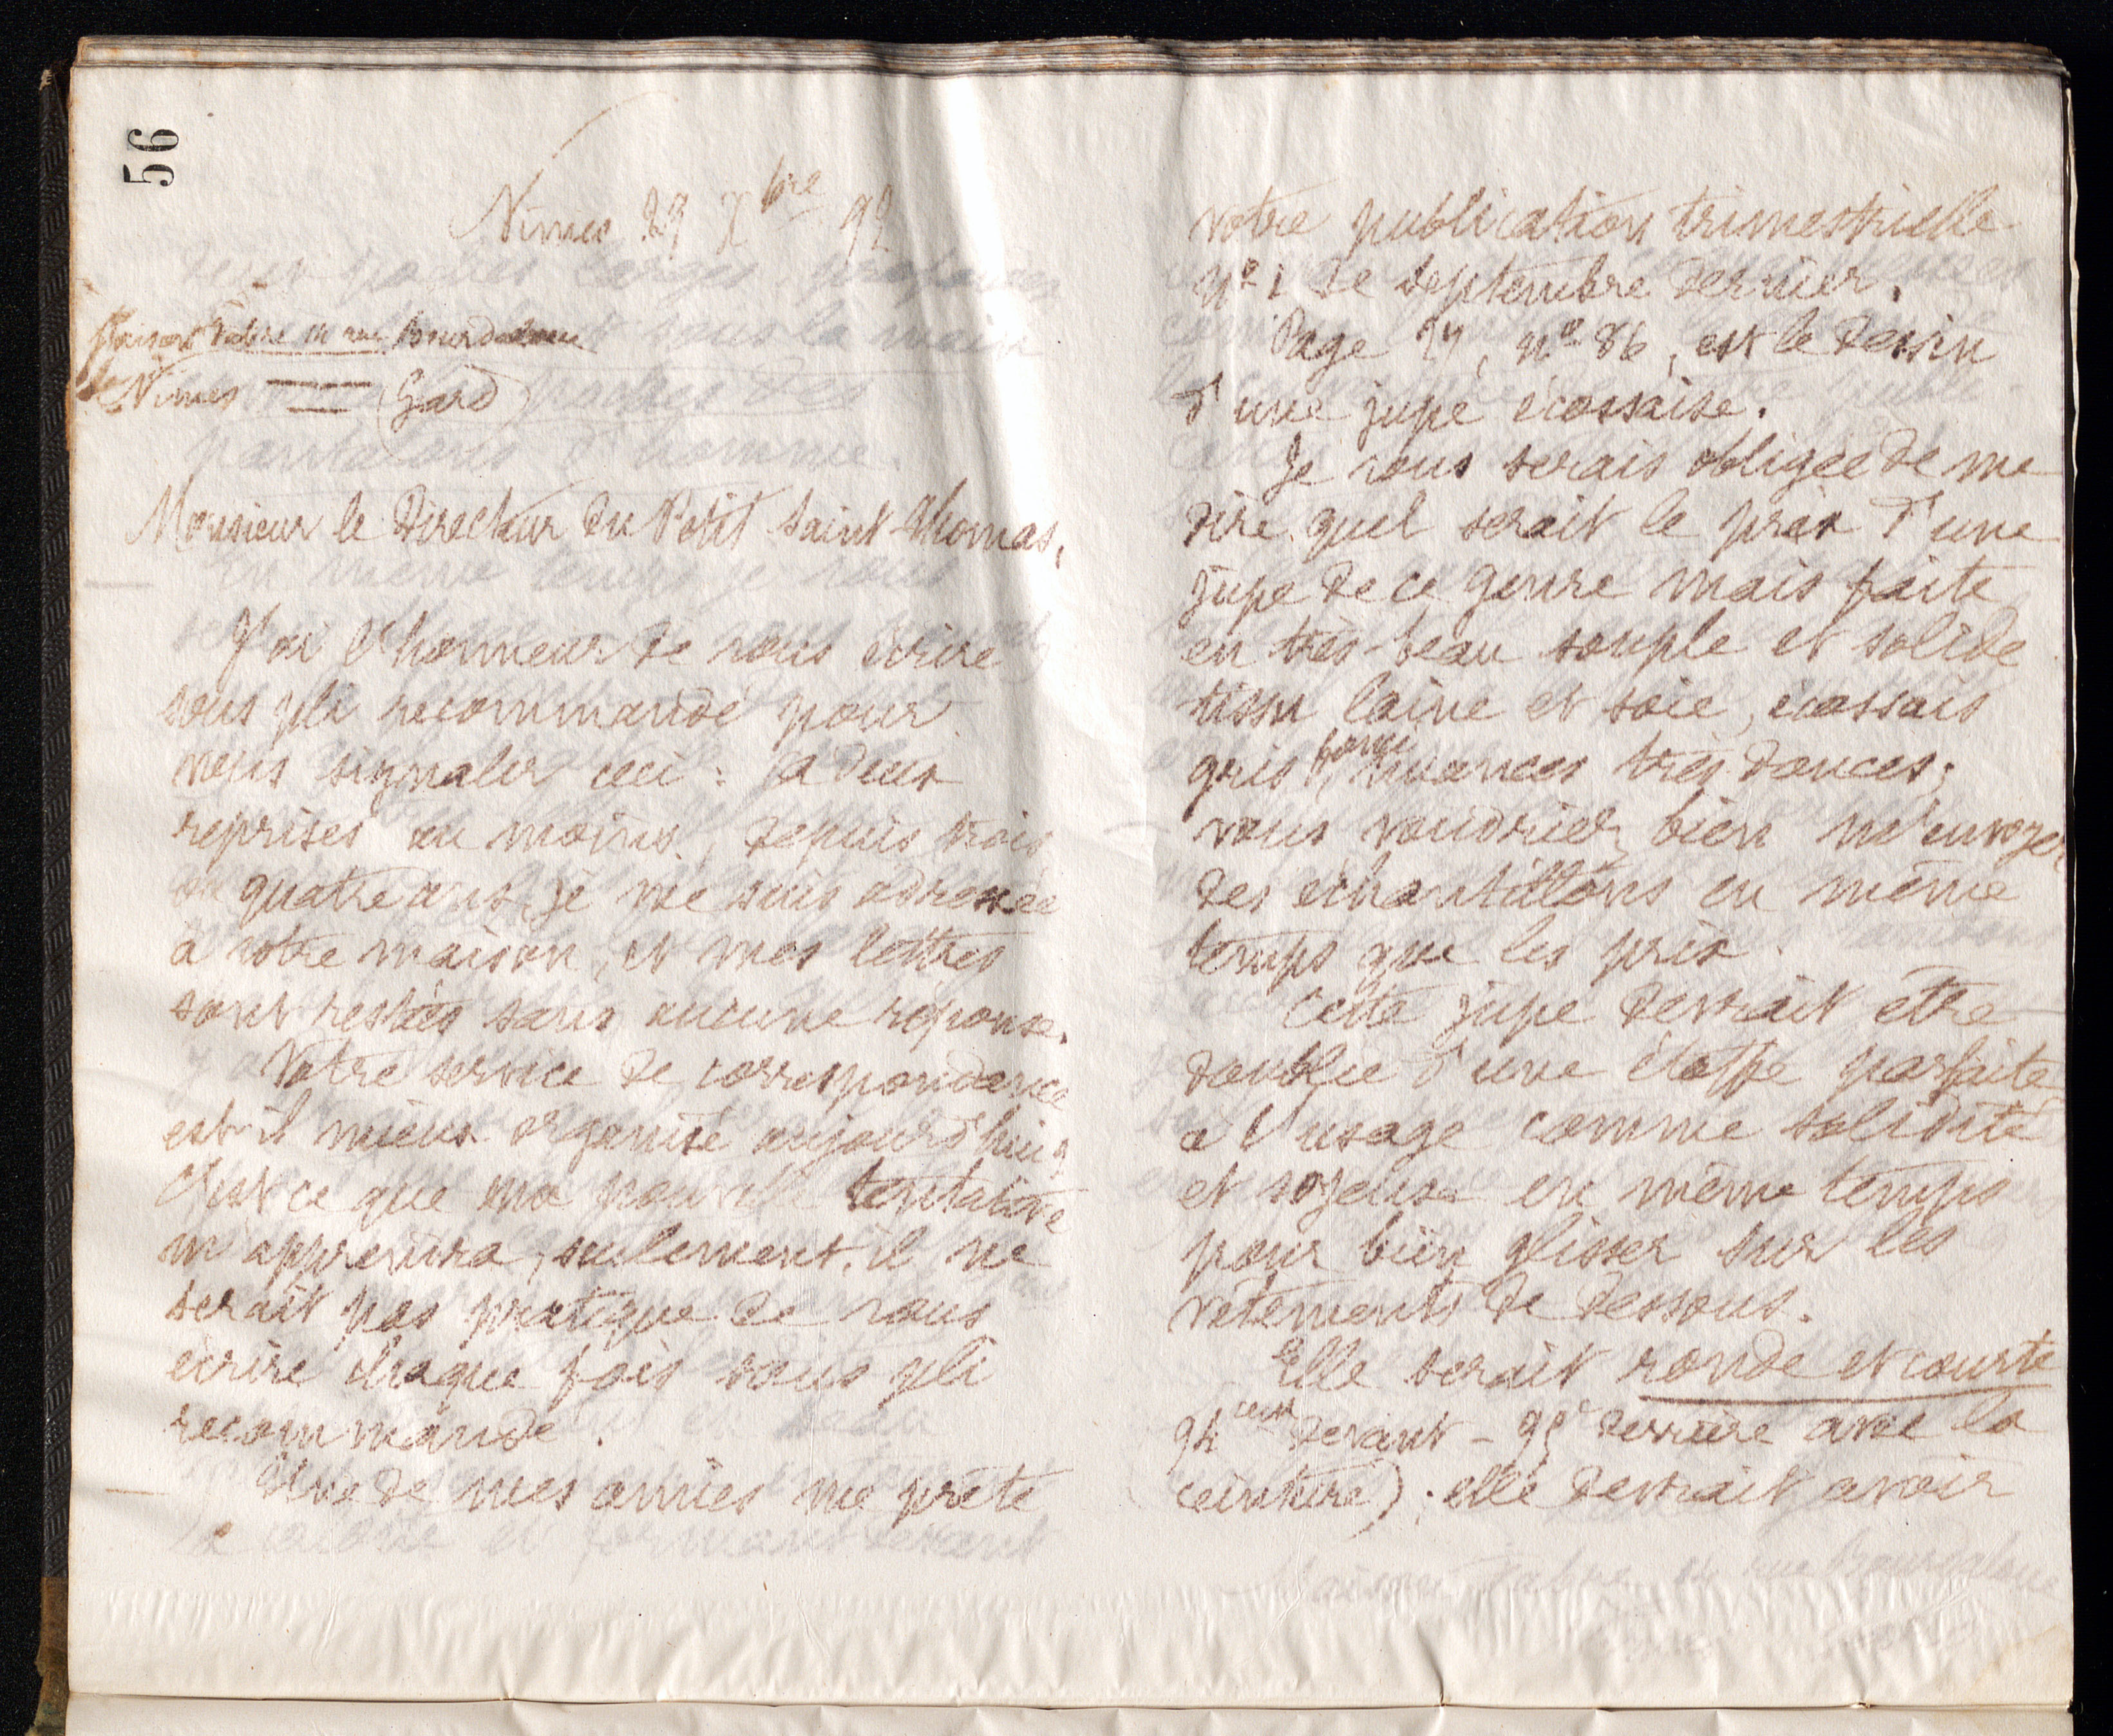 56
Nîmes 29 Xbre 92
Maison Fabre 10 rue Bourdaloue
Nîmes (Gard)
Monsieur le Directeur du Petit Saint-Thomas,
J'ai l'honneur de vous écrire
sous pli recommandé pour
vous signaler ceci : à deux
reprises au moins, depuis trois
ou quatre ans, je me suis adressée
à votre maison, et mes lettres
sont restées sans aucune réponse.
Votre service de correspondance
est-il mieux organisé aujourd'hui ?
C'est ce que ma nouvelle tentative
m'apprendra, seulement, il ne
serait pas pratique de vous
écrire chaque fois sous pli
recommandé.
Une de mes amies me prête
votre publication trimestrielle
nº 1 de septembre dernier.
Page 27, nº 86, est le dessin
d'une jupe écossaise.
Je vous serais obligée de me
dire quel serait le prix d'une
jupe de ce genre mais faite
en très-beau souple et solide
tissu laine et soie, écossais
gris nuances très douces ;
vous voudriez bien m'envoyer
des échantillons en même
temps que les prix.
Cette jupe devrait être
doublée d'une étoffe parfaite
à l'usage comme solidité
et soyeuse en même temps
pour bien glisser sur les
vêtements de dessous.
Elle serait ronde et courte
94 cent devant - 95 c derrière avec la
ceinture) ; elle devrait avoir